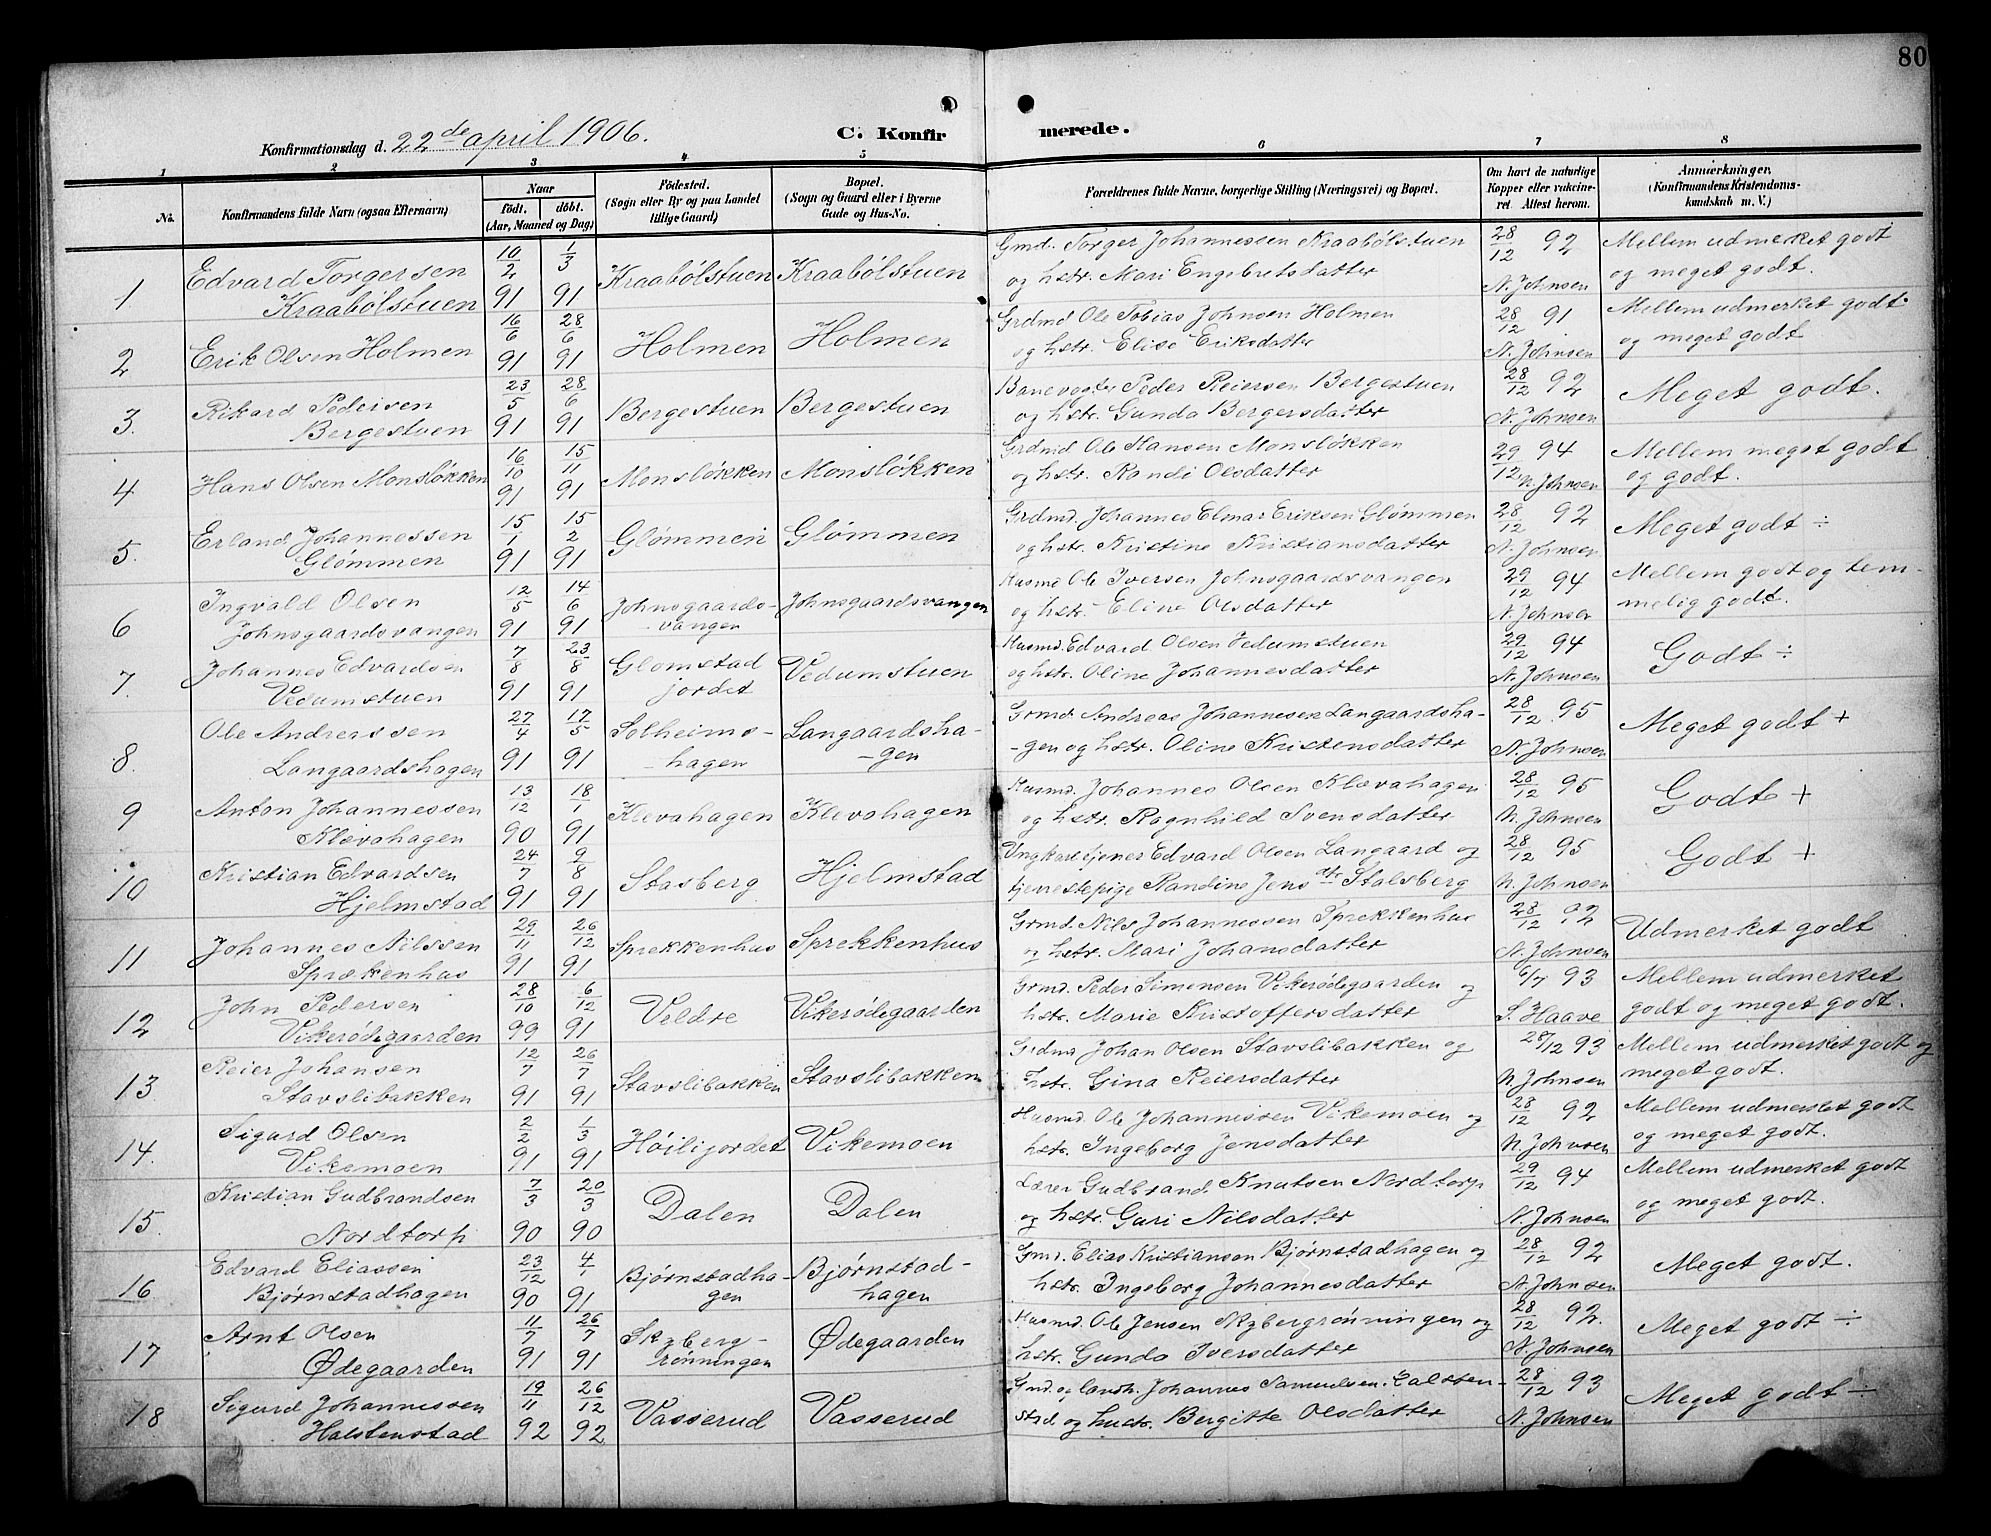 80
Konfirmationsdag d. 22de april 1906.
C. Konfirmerede.
1 2 3 4 5 6 7 8
No.
Konfirmandens fulde Navn (ogsaa Efternavn)
Naar
født. døbt.
(Aar, Maaned og Dag)
Fødested.
(Sogn eller By og paa Landet
tillige Gaard)
Bopæl.
(Sogn og Gaard eller i Byerne
Gade og Hus-No.
Forældrenes fulde Navne, borgerlige Stilling (Næringsvei) og Bopæl.
Om havt de naturlige
Kopper eller vakcineret
Attest herom.
Anmærkninger,
(Konfirmandens Kristendomskundskab
m. V.)
1 Edvard Torgersen Kraabølstuen 10/2 91 1/3 91 Kraabølstuen Kraabølstuen
Gmd. Torger Johannessen Kraabølstuen
og hstr. Mari Engebretsdatter
28/12 92 N. Johnsen
Mellem udmerket godt
og meget godt.
2 Erik Olsen Holmen 16/6 91 28/6 91 Holmen Holmen
Grdmd Ole Tobias Johnsen Holmen
og hstr. Elise Eriksdatter
28/12 91 N. Johnsen
Mellem udmerket godt
og meget godt
3. Rikard Pedersen Bergestuen 23/5 91 28/6 91 Bergestuen Bergestuen
Banevogter Peder Reiersen Bergestuen
og hstr. Gunda Bergersdatter
28/12 92 N. Johnsen
Meget godt.
4 Hans Olsen Monsløkken 16/10 91 15/11 91 Monsløkken Monsløkken
Grdmd Ole Hansen Monsløkken
og hstr. Randi Olsdatter
29/12 94 N. Johnsen
Mellem meget godt
og godt.
5. Erland Johannessen Glømmen 15/1 91 15/2 91 Glømmen Glømmen
Grdmd. Johannes Elmar Eriksen Glømmen
og hstr. Kristine Kristiansdatter
28/12 92 N. Johnsen
Meget godt ÷
6 Ingvald Olsen Johnsgaardsvangen 12/5 91 14/6 91 Johnsgaards-vangen Johnsgaardsvangen
Husmd Ole Iversen Johnsgaardsvangen
og hstr. Eline Olsdatter
29/12 94 N. Johnsen
Mellem godt og tem-
melig godt.
7. Johannes Edvardsen Vedumstuen 7/8 91 23/8 91 Glomstad jordet Vedumstuen
Husmd. Edvard Olsen Vedumstuen
og hstr. Oline Johannesdatter
29/12 94 N. Johnsen
Godt ÷
8. Ole Andreassen Langaardshagen 27/4 91 17/5 91 Solheims-hagen Langaardsha-gen
Grmd. Andreas Johannesen Langaardsha-
-gen og hstr. Oline Kristensdatter
28/12 95 N. Johnsen
Meget godt +
9 Anton Johannessen Klævahagen 13/12 90 18/1 91 Klevahagen Klevahagen
Husmd. Johannes Olsen Klævahagen
og hstr. Ragnhild Svensdatter
28/12 95 N. Johnsen
Godt +
10 Kristian Edvardsen Hjelmstad 24/7 91 9/8 91 Stasberg Hjelmstad
Ungkarl tjener Edvard Olsen Langaard og
tjenestepige Randine Jensdtr Stalsberg
28/12 95 N. Johnsen
Godt +
11 Johannes Nilssen Sprækenhus 29/11 91 26/12 91 Sprekkenhus Sprekkenhus
Grmd. Nils Johannessen Sprekkenhus
og hstr. Mari Johansdatter
28/12 92 N. Johnsen
Udmerket godt
12 John Pedersen Vikerødegaarden 28/10 99 6/12 91 Veldre Vikerødegaarden
Grmd. Peder Simensen Vikerødegaarden og
hstr. Marie Kristoffersdatter
6/7 93 S. Haave
Mellem udmerket
godt og meget godt.
13 Reier Johansen Stavslibakken 12/7 91 26/7 91 Stavslibakken Stavslibakken
Grdmd Johan Olsen Stavslibakken og
hstr. Gina Reiersdatter
28/12 93 N. Johnsen
Mellem udmerket godt og
meget godt.
14. Sigurd Olsen Vikemoen 2/2 91 1/3 91 Høilijordet Vikemoen
Husmd. Ole Johannessen Vikemoen og
hstr. Ingeborg Jensdatter
28/12 92 N. Johnsen
Mellem udmerket godt
og meget godt.
15. Kristian Gudbrandsen Nordtorp 7/3 90 20/3 90 Dalen Dalen
Lærer Gudbrand Knutsen Nordtorp
og hstr. Guri Nilsdatter
29/12 94 N. Johnsen
Mellem udmerket godt
og meget godt.
16 Edvard Eliassen Bjørnstadhagen 23/12 90 4/1 91 Bjørnstadha-gen Bjørnstad-hagen
Gmd. Elias Kristiansen Bjørnstadhagen og
hstr. Ingeborg Johannesdatter
28/12 92 N. Johnsen
Meget godt.
17 Arnt Olsen Ødegaarden 11/7 91 26/7 91 Skyberg-rønningen Ødegaarden
Husmd. Ole Jensen Skybergrønningen og
hstr. Gunda Iversdatter
28/12 92. N. Johnsen
Meget godt ÷
18 Sigurd Johannessen Halstenstad 19/11 92 26/12 92 Vasserud Vasserud
Gmd. og landh. Johannes Samuelsen
stad og hustr. Bergitte Olsdatter
28/12 93 N. Johnsen
Meget godt ÷